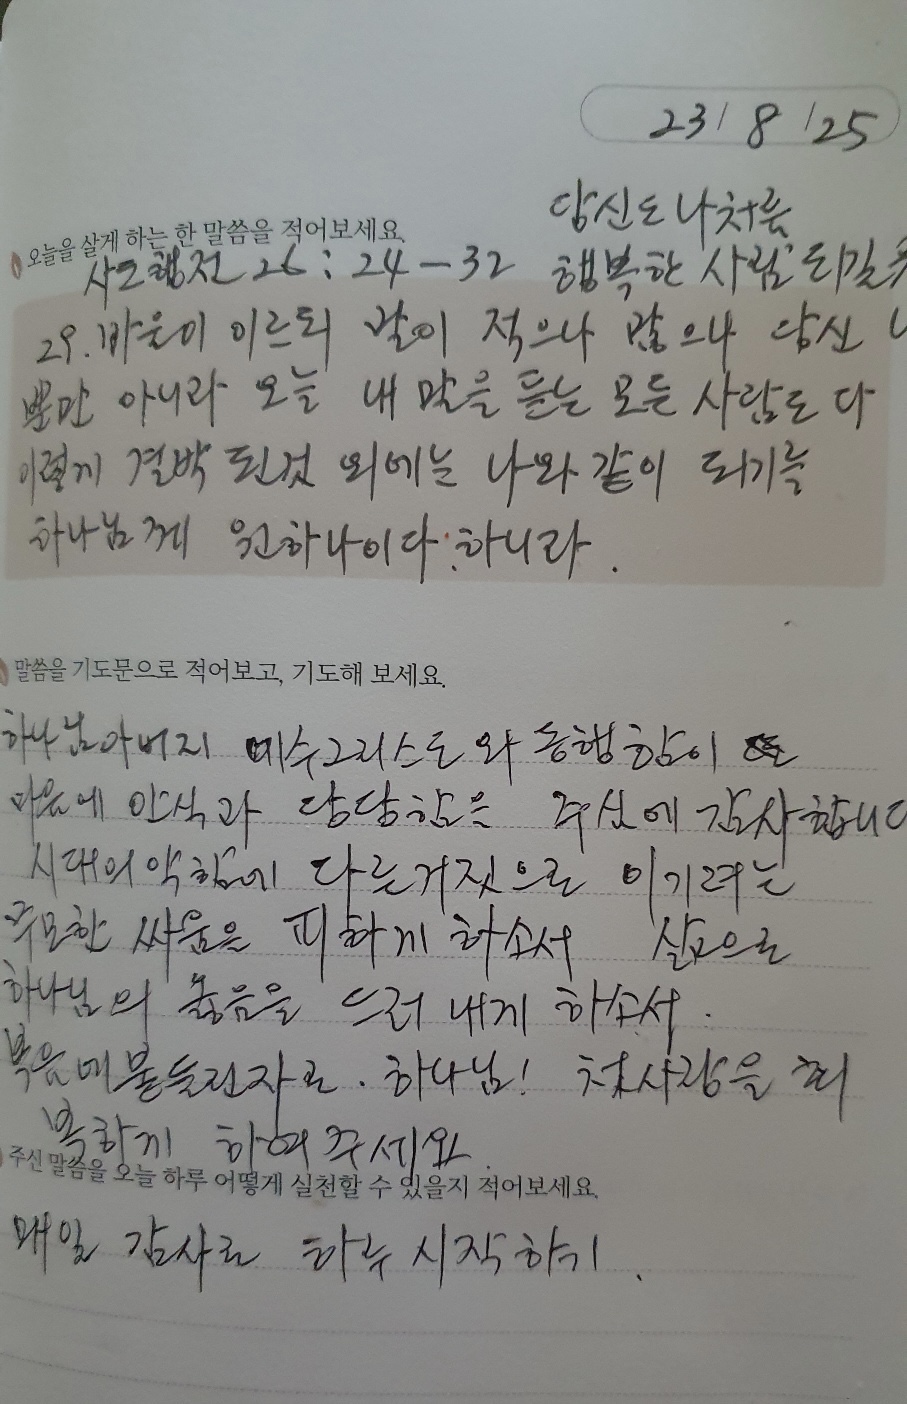 23/8/25
당신도 나처럼
오늘을 살게 하는 한 말씀을 적어보세요.
사도행전 26:24-32 행복한 사람 되길
29. 바울이 이르되 말이 적으나 많으나 당신
뿐만 아니라 오늘 내 말을 듣는 모든 사람도 다
이렇게 결박된것 외에는 나와 같이 되기를
하나님께 원하나이다 하니라.
말씀을 기도문으로 적어보고, 기도해 보세요.
하나님아버지 예수그리스도와 동행함이
마음에 안식과 당당함을 주심에 감사합니다
시대의 악함에 다른거짓으로 이기려는
무모한 싸움을 피하게 하소서 삶으로
하나님의 옳음을 드러내게 하소서.
복음에붙들린자로. 하나님! 첫사랑을 회
복하게 하여주세요.
주신 말씀을 오늘 하루 어떻게 실천할 수 있을지 적어보세요.
매일 감사로 하루 시작하기.